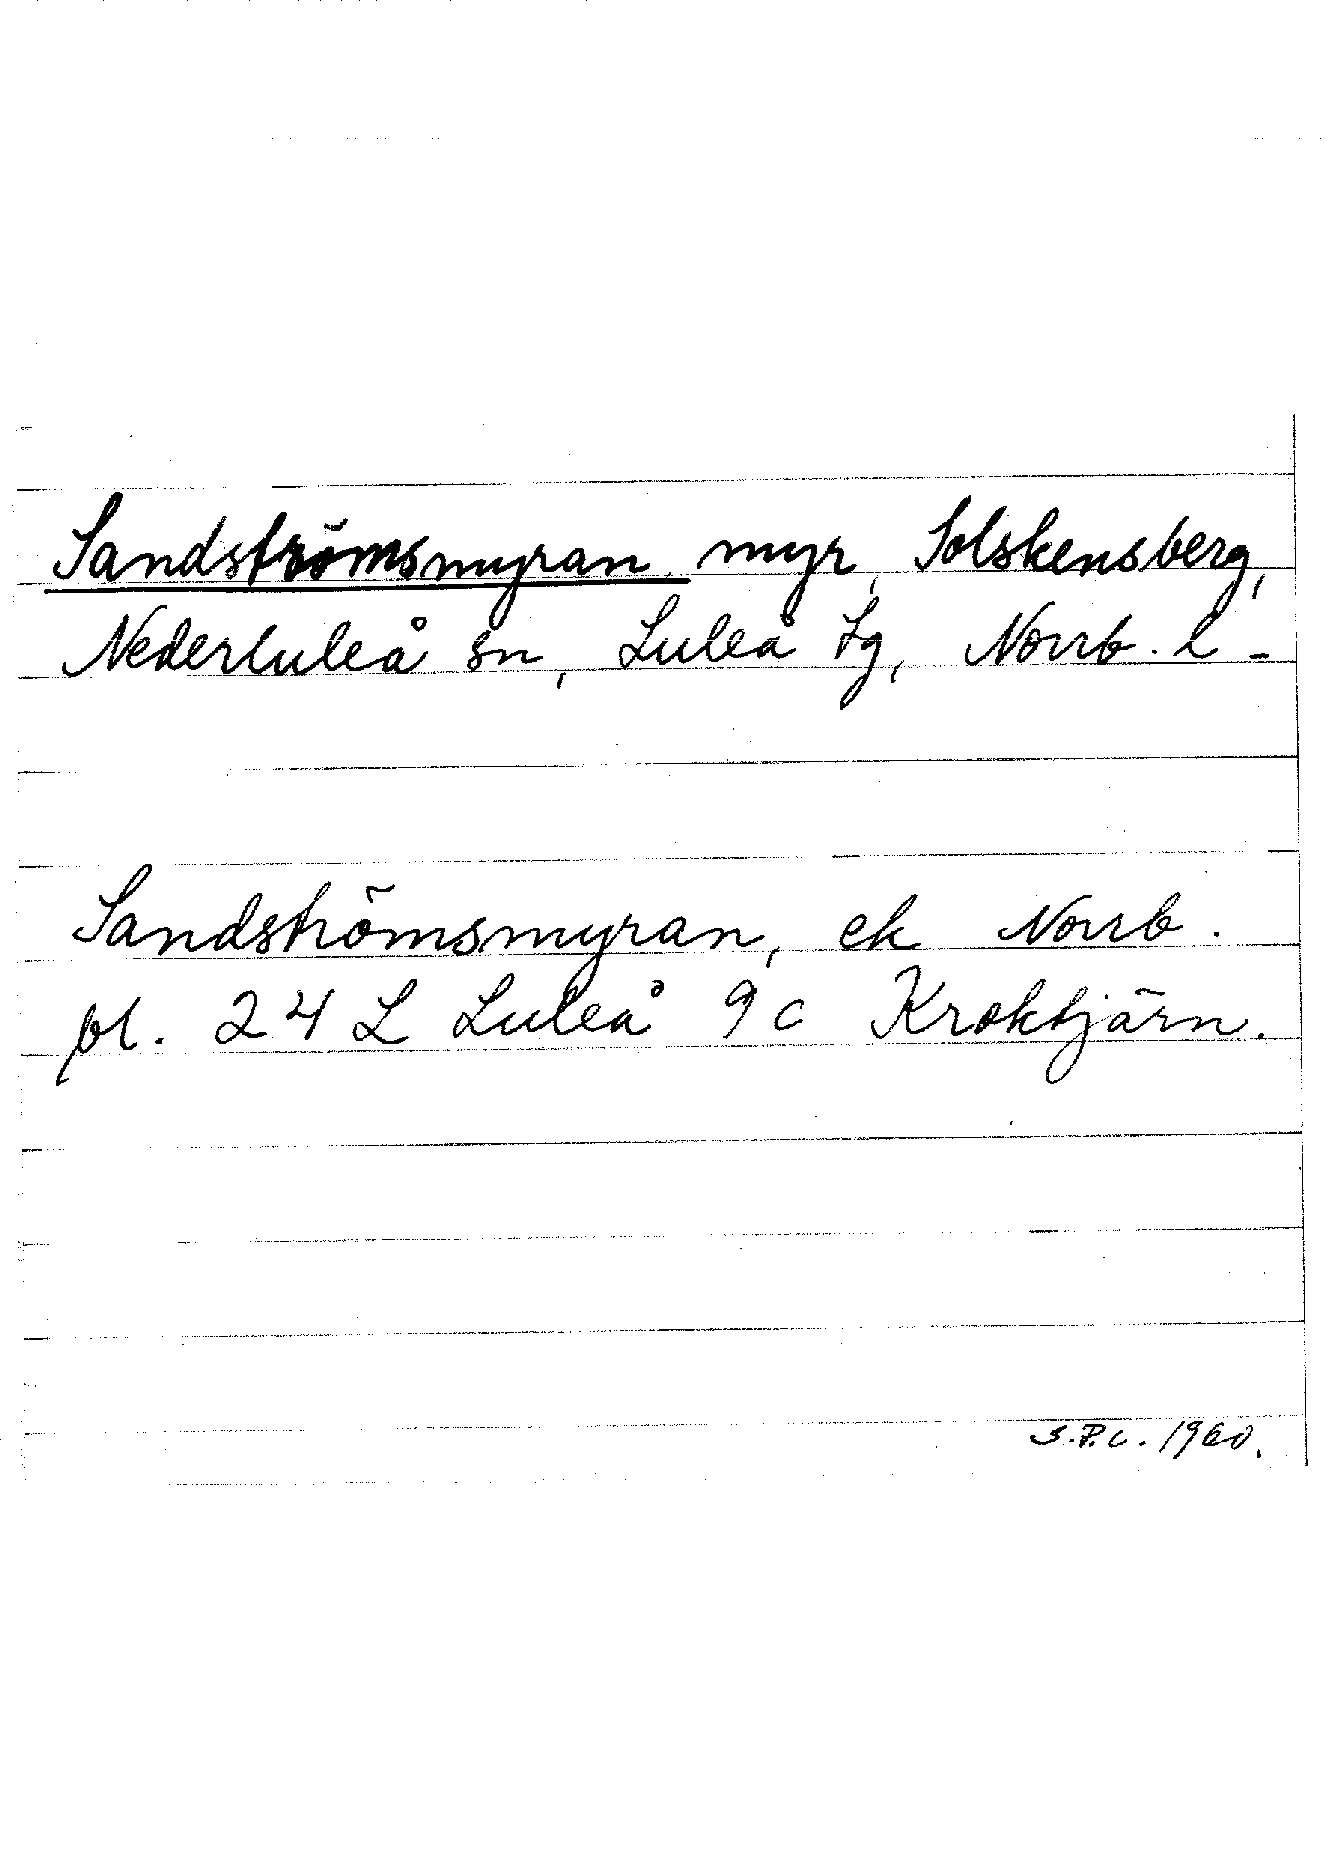 Sandströmsmyran myr, Solskensberg,
Nederluleå sn, Luleå tg, Norrb. l -
Sandströmsmyran, ek Norrb.
bl. 24 L Luleå 9 c Kroktjärn.
S.P.C. 1960.